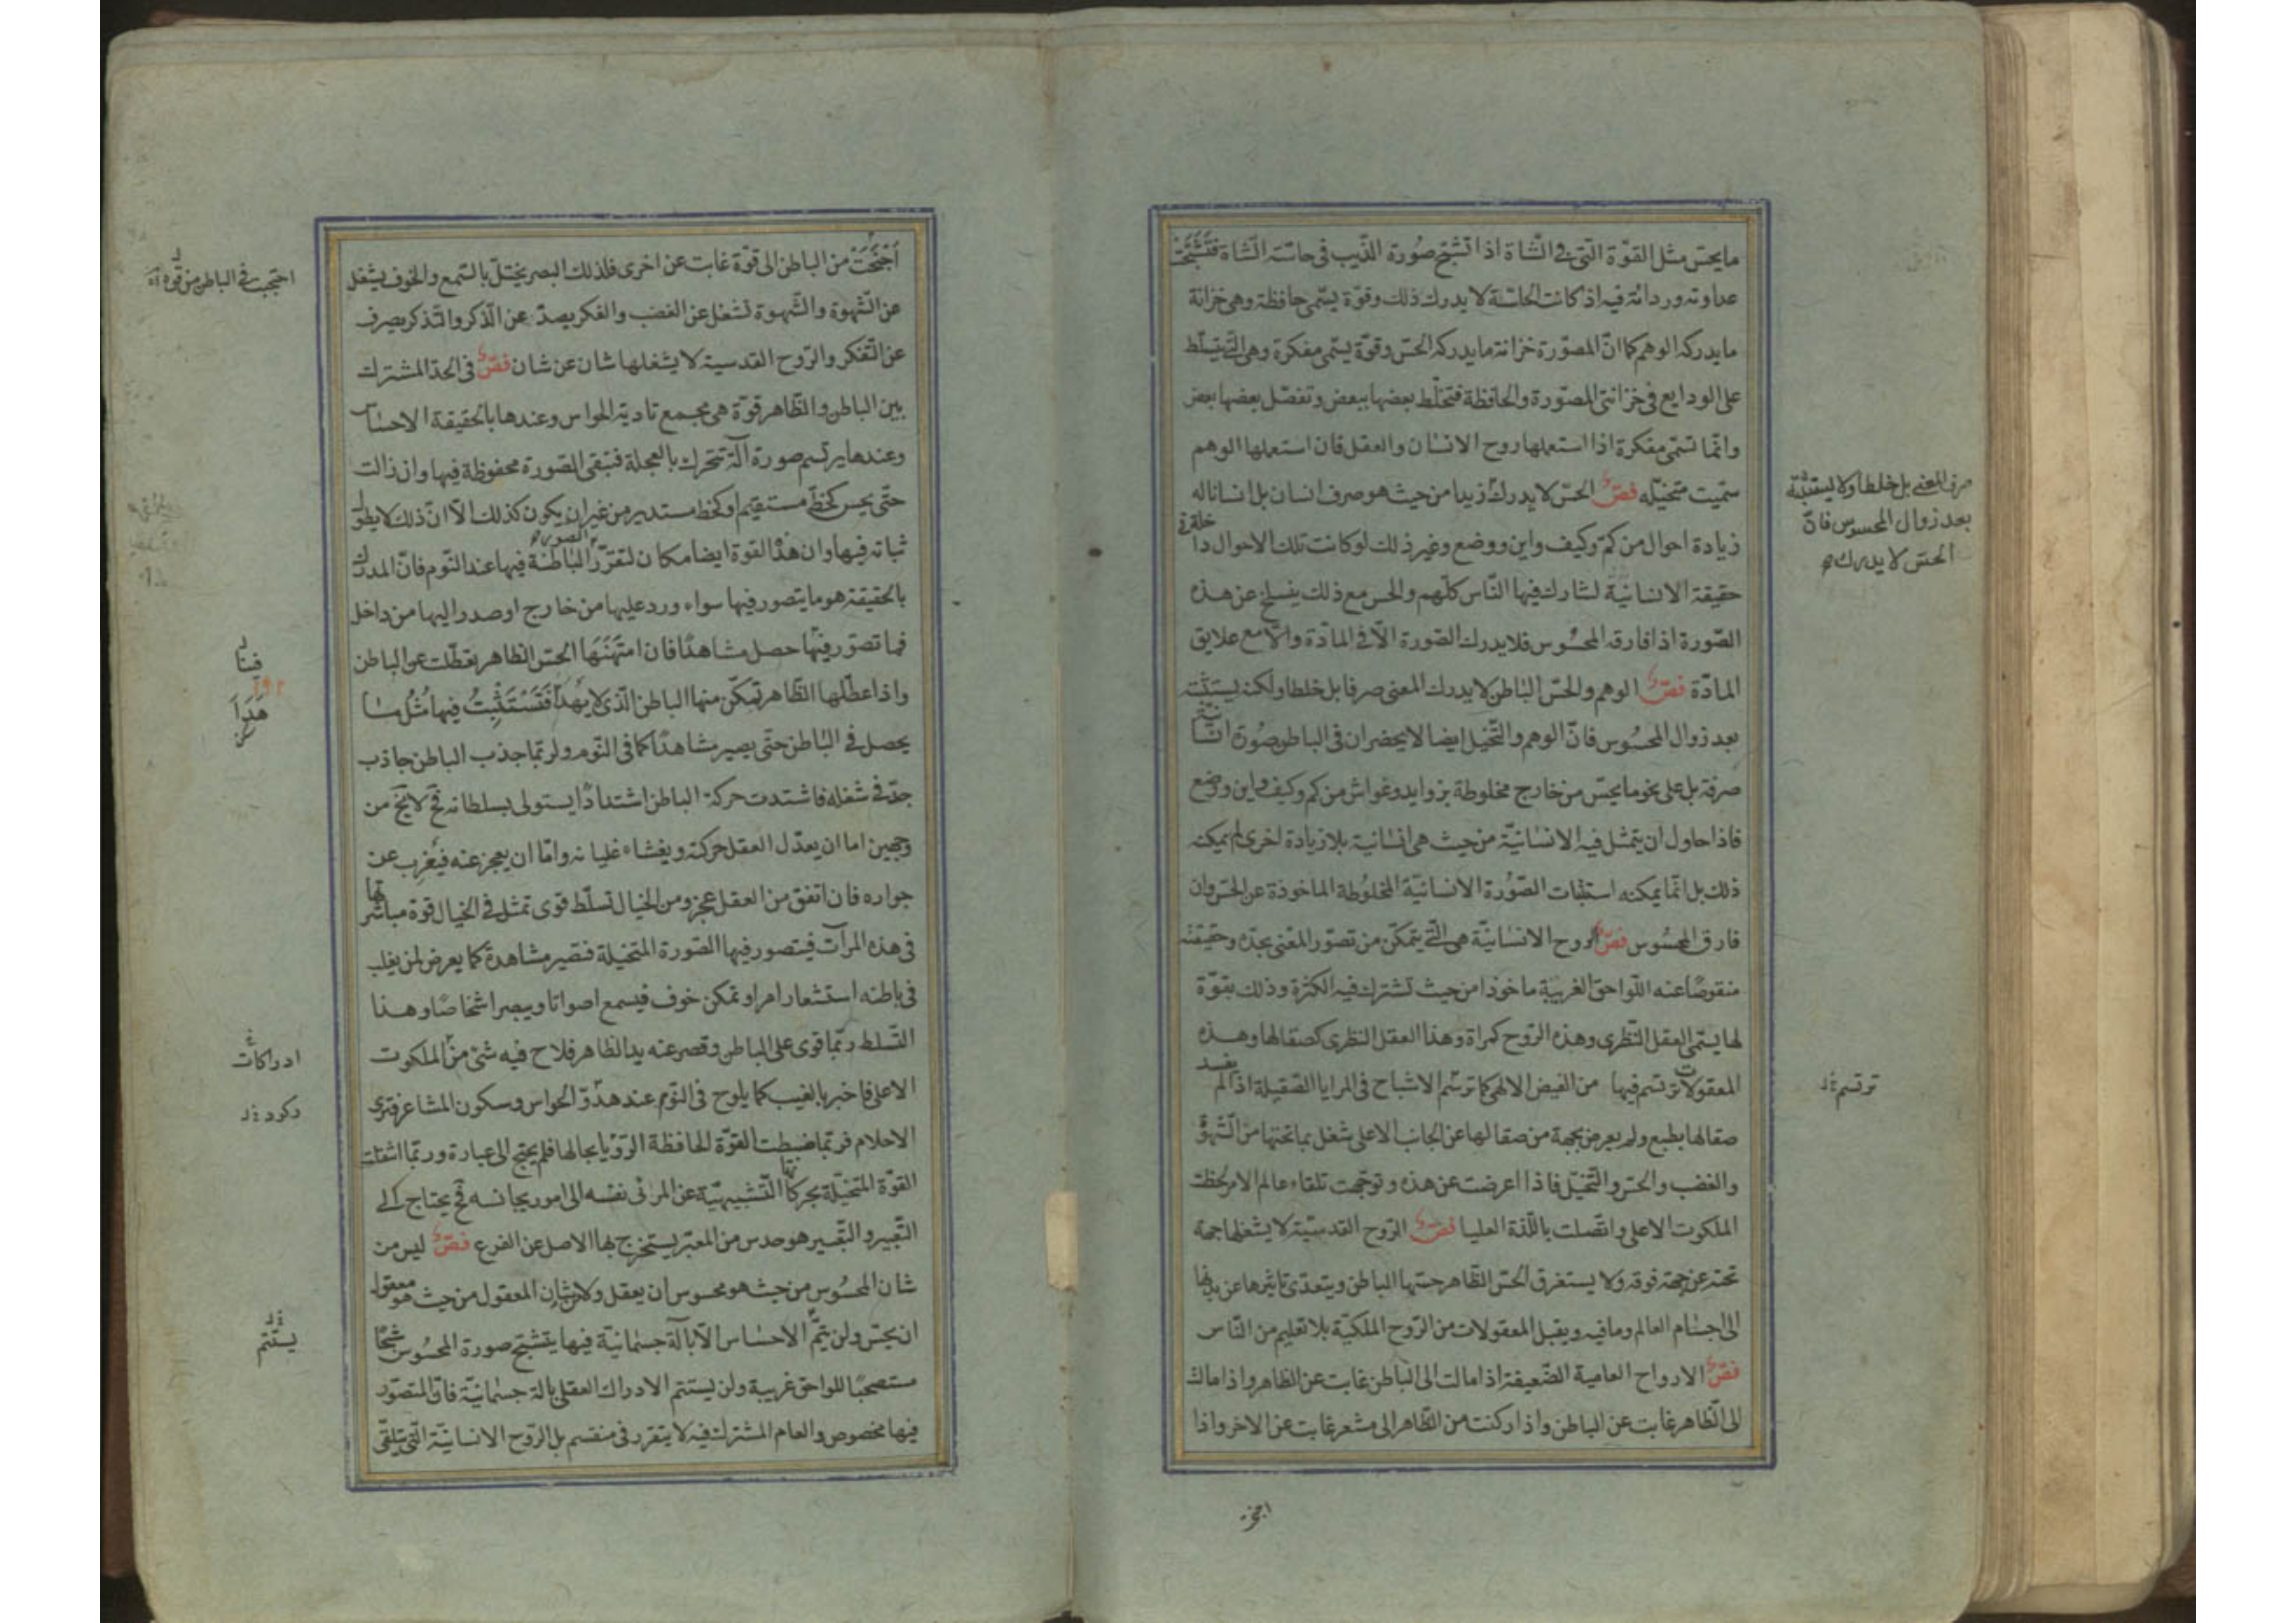 ما يحس مثل القوة التي في الشاة اذا تشبح صورة الذيب في حاسة الشاة فتشبحت
عداوته وردائة فيه اذ كانت الحاسة لا يدرك ذلك وقوة يسمى حافظة وهي خزانة
ما يدركه الوهم كما ان المصورة خزانة ما يدركه الحس وقوة يسمى مفكرة وهي التي يتسلط
على الودايع في خزانتي المصورة والحافظة فتخلط بعضها ببعض وتفصل بعضها بعض
وانما تسمى مفكرة اذا استعملها روح الانسان والعقل فان استعملها الوهم
سميت متخيله فص الحس لا يدرك زيدا من حيث هو صرف انسان بل انسانا له
زيادة احوال من كم وكيف واين ووضع وغير ذلك لو كانت تلك الاحوال داخلة في
حقيقة الانسانية لشارك فيها الناس كلهم والحس مع ذلك ينسلخ عن هذه
الصورة اذا فارقه المحسوس فلا يدرك الصورة الا في المادة والا مع علايق
المادة فص الوهم والحس الباطن لا يدرك المعنى صرفا بل خلطا ولكنه يستثبته
بعد زوال المحسوس فان الوهم والتخيل ايضا لا يحضران في الباطن صورة انسانية
صرفة بل على نحو ما يحس من خارج مخلوطة بزوايد وغواش من كم وكيف واين ووضع
فاذا حاول ان يتمثل فيه الانسانية من حيث هي انسانية بلا زيادة اخرى لم يمكنه
ذلك بل انما يمكنه استثبات الصورة الانسانية المخلوطة الماخوذة عن الحس وان
فارق المحسوس فص الروح الانسانية هي التي يتمكن من تصور المعنى بحده وحقيقته
منقوصا عنه اللواحق الغريبة ماخوذا من حيث تشترك فيه الكثرة وذلك بقوة
لها يسمى العقل النظري وهذه الروح كمراة وهذا العقل النظري كصقالها وهذه
المعقولات ترتسم فيها من الفيض الالهي كما ترتسم الاشباح في المرايا الصقيلة اذا لم يفسد
صقالها بطبع ولم يعرض بجهة من صقالها عن الجانب الاعلى شغل بما تحتها من الشهوة
والغضب والحس والتخيل فاذا اعرضت عن هذه وتوجهت تلقاء عالم الامر لحظت
الملكوت الاعلى واتصلت باللذة العليا فص الروح القدسية لا يشغلها جهة
تحته عن جهة فوقه ولا يستغرق الحس الظاهر حسها الباطن ويتعدى تاثيرها عن بدنها
الى اجسام العالم وما فيه ويقبل المعقولات من الروح الملكية بلا تعليم من الناس
فص الارواح العامية الضعيفة اذا مالت الى الباطن غابت عن الظاهر واذا مالت
الى الظاهر غابت عن الباطن واذا ركنت من الظاهر الى مشعر غابت عن الاخر واذا
صرف المعنى بل خلطا ولا يستثبته
بعد زوال المحسوس فان
الحس لا يدرك
ترتسم
اجنحت من الباطن الى قوة غابت عن اخرى فلذلك البصر يختل بالسمع والخوف يشغل
عن الشهوة والشهوة تشغل عن الغضب والفكر يصد عن الذكر والتذكر يصرف
عن التفكر والروح القدسية لا يشغلها شان عن شان فص في الحد المشترك
بين الباطن والظاهر قوة هي مجمع تادية الحواس وعندها بالحقيقة الاحساس
وعندها يرتسم صورة آلة تتحرك بالعجلة فتبقى الصورة محفوظة فيها وان زالت
حتى يحس كخط مستقيم او كخط مستدير من غير ان يكون كذلك الا ان ذلك لا يطول
ثباته فيها وان هذه القوة ايضا مكان لتقرر الصور الباطنة فيها عند النوم فان المدرك
بالحقيقة هو ما يتصور فيها سواء ورد عليها من خارج او صدر اليها من داخل
فما تصور فيها حصل مشاهدا فان امتهنها الحس الظاهر تعطلت عن الباطن
واذا عطلها الظاهر تمكن منها الباطن الذي لا يهدا فتستثبت فيها مثل ما
يحصل في الباطن حتى يصير مشاهدا كما في النوم ولربما جذب الباطن جاذب
جد في شغله فاشتدت حركة الباطن اشتدادا يستولى بسلطانه فح لا يخ من
وجهين اما ان يعدل العقل حركته ويفشاء غليانه واما ان يعجز عنه فيغرب عن
جواره فان اتفق من العقل عجز ومن الخيال تسلط قوى تمثل في الخيال قوة مباشرتها
في هذه المرآت فيتصور فيها الصورة المتخيلة فتصير مشاهدة كما يعرض لمن يغلب
في باطنه استشعار امر او تمكن خوف فيسمع اصواتا ويبصر اشخاصا وهذا
التسلط ربما قوى على الباطن وقصر عنه يد الظاهر فلاح فيه شئ من الملكوت
الاعلى فاخبر بالغيب كما يلوح في النوم عند هدو الحواس وسكون المشاعر فترى
الاحلام فربما ضبطت القوة الحافظة الرؤيا بحالها فلم يحتج الى عبارة وربما انتقلت
القوة المتخيلة بحركاتها التشبيهية عن المرئى نفسه الى امور يجانسه فح يحتاج الى
التعبير والتعبير هو حدس من المعبر يستخرج بها الاصل عن الفرع فص ليس من
شان المحسوس من حيث هو محسوس ان يعقل ولا من شان المعقول من حيث هو معقول
ان يحس ولن يتم الاحساس الا بآلة جسمانية فيها يتشبح صورة المحسوس شبحا
مستصحبا للواحق غريبة ولن يستتم الادراك العقلى بالة جسمانية فان المتصور
فيها مخصوص والعام المشترك فيه لا يتقرر في منقسم بل الروح الانسانية التي يتلقى
احتجبت في الباطن من قوة
هدا
ادراكات
يستتم